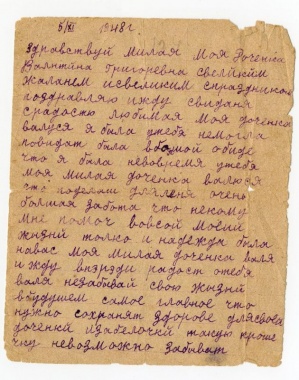 5/XI 1948 г.
Здравствуй милая Моя Доченка
Валнтина Григоревна свеликим
жаланем исвеликим спраздником
поздравляю ижду свиданя
срадостю любимая моя доченка
валуся я была утебя немогла
повидат была вбошой обиде
что я была невовремя утебя
моя милая доченка валюся
это поделаш дляменя очень
болшая забота что некому
мне помоч вовсой моией
жизни толко и надежда была
навас моя милая доченка валя
и жду внэрэди радост отебя
валя незабывай свою жизнй
вбудушем самое главное что
нужно сохранят здорове длясвоей
доченки изабелочки такую кроше
чку невозможно забыват